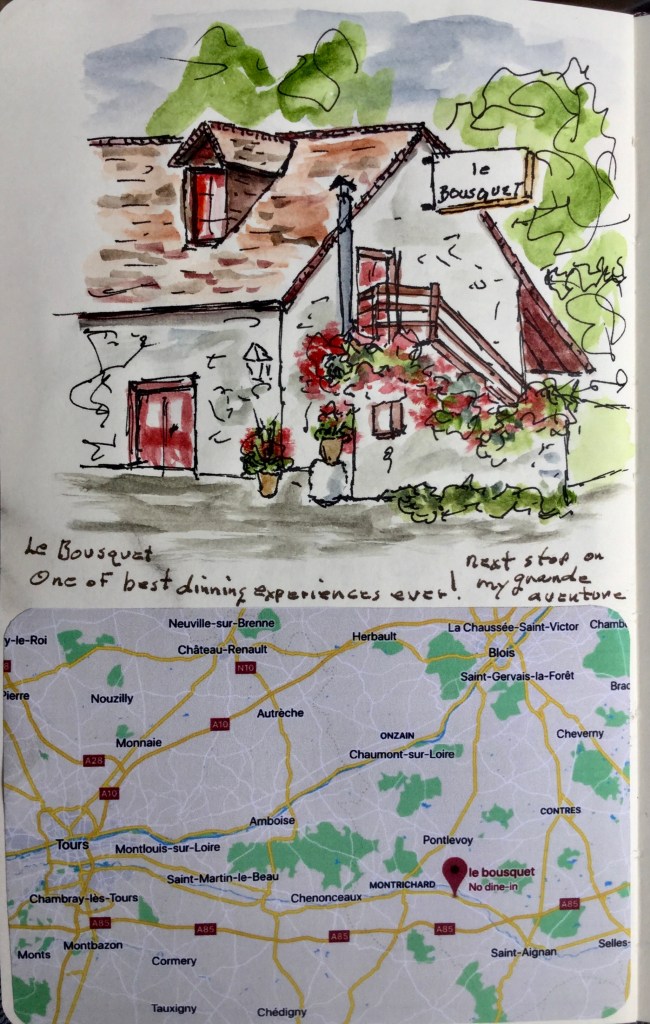 le
BOUSQUET
Le Bousquet
One of best dinning experiences ever!
next stop on
my grande
aventure
Neuville-sur-Brenne
La Chaussée-Saint-Victor
Chamb
y-le-Roi
Herbault
Château-Renault
Blois
N10
Saint-Gervais-la-Forêt
Pierre
Nouzilly
Brac
Autrèche
A10
Monnaie
ONZAIN
Cheverny
Chaumont-sur-Loire
A28
A10
CONTRES
Amboise
Tours
Montlouis-sur-Loire
Pontlevoy
le bousquet
No dine-in
Saint-Martin-le-Beau
MONTRICHARD
Chambray-lès-Tours
Chenonceaux
A85
A85
A85
A85
A85
Montbazon
Selles-
Monts
Saint-Aignan
Cormery
Tauxigny
Chédigny